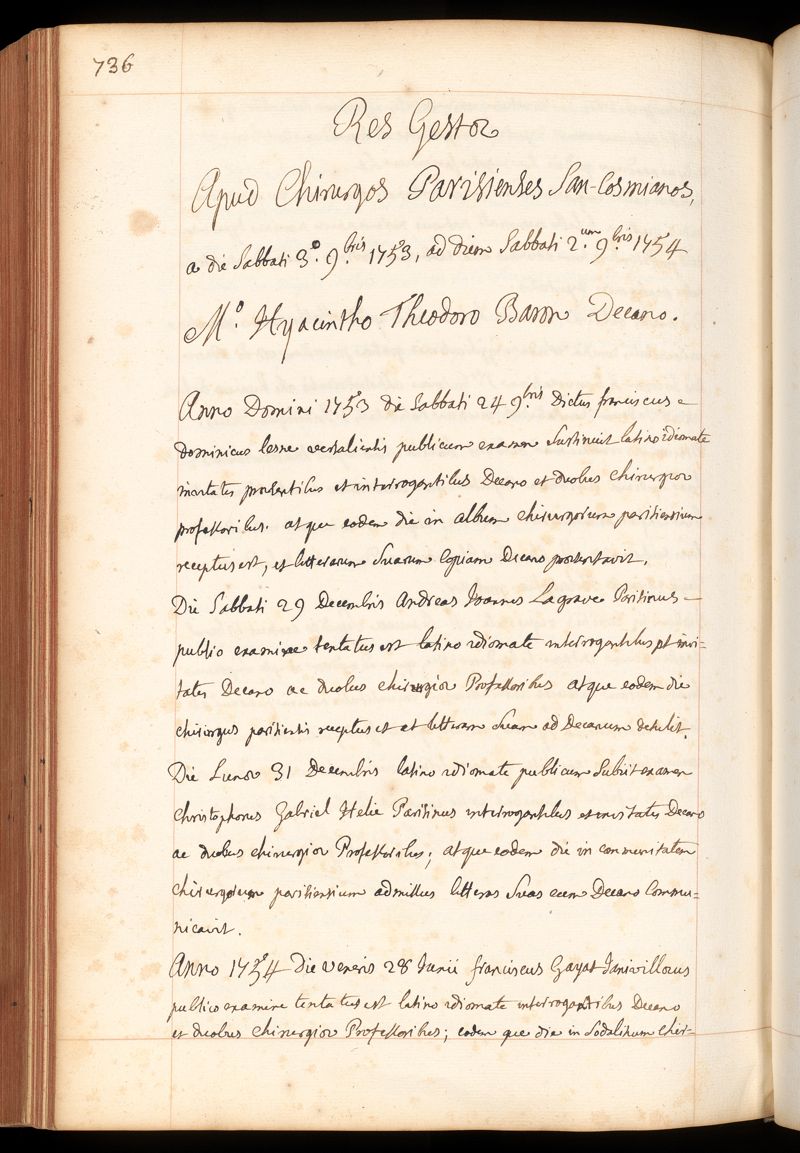 736
Res Gestæ
Apud Chirurgos Parisienses San-Cosmianos,
a die Sabbati 3°. 9.bris 1753°, ad diem Sabbati 2.um 9.bris 1754
M°. Hyacintho Theodoro Baron Decano.
Anno Domini 1753° die Sabbati 24 9.bris Dictus franciscus
dominicus lesne versaliensis publicum examen sustinuit latino idiomate
invitatis præsentibus et interrogantibus Decano et duobus chirurgiæ
professoribus. atque eodem die in album chirurgorum parisiensium
receptus est, et litterarum suarum copiam Decano præsentavit.
Die Sabbati 29 Decembris Andreas Joannes Lagrave Parisinus
publico examine tentatus est latino idiomate interrogantibus et invi=
tatis Decano ac duobus chirurgiæ Professoribus atque eodem die
chirurgus parisiensis receptus est et litteram suam ad Decanum detulit.
Die Lunæ 31 Decembris latino idiomate publicum subiit examen
Christophorus Gabriel Helie Parisinus interrogantibus et invitatis Decano
ac duobus chirurgiæ Professoribus; atque eodem die in communitatem
chirurgorum parisiensium admissus litteras suas cum Decano Commu=
nicavit.
Anno 1754° die veneris 28 Junii franciscus Gayat Janivillæus
publico examine tentatus est latino idiomate interrogantibus Decano
et duobus chirurgiæ Professoribus; eodem que die in sodalitium chir-